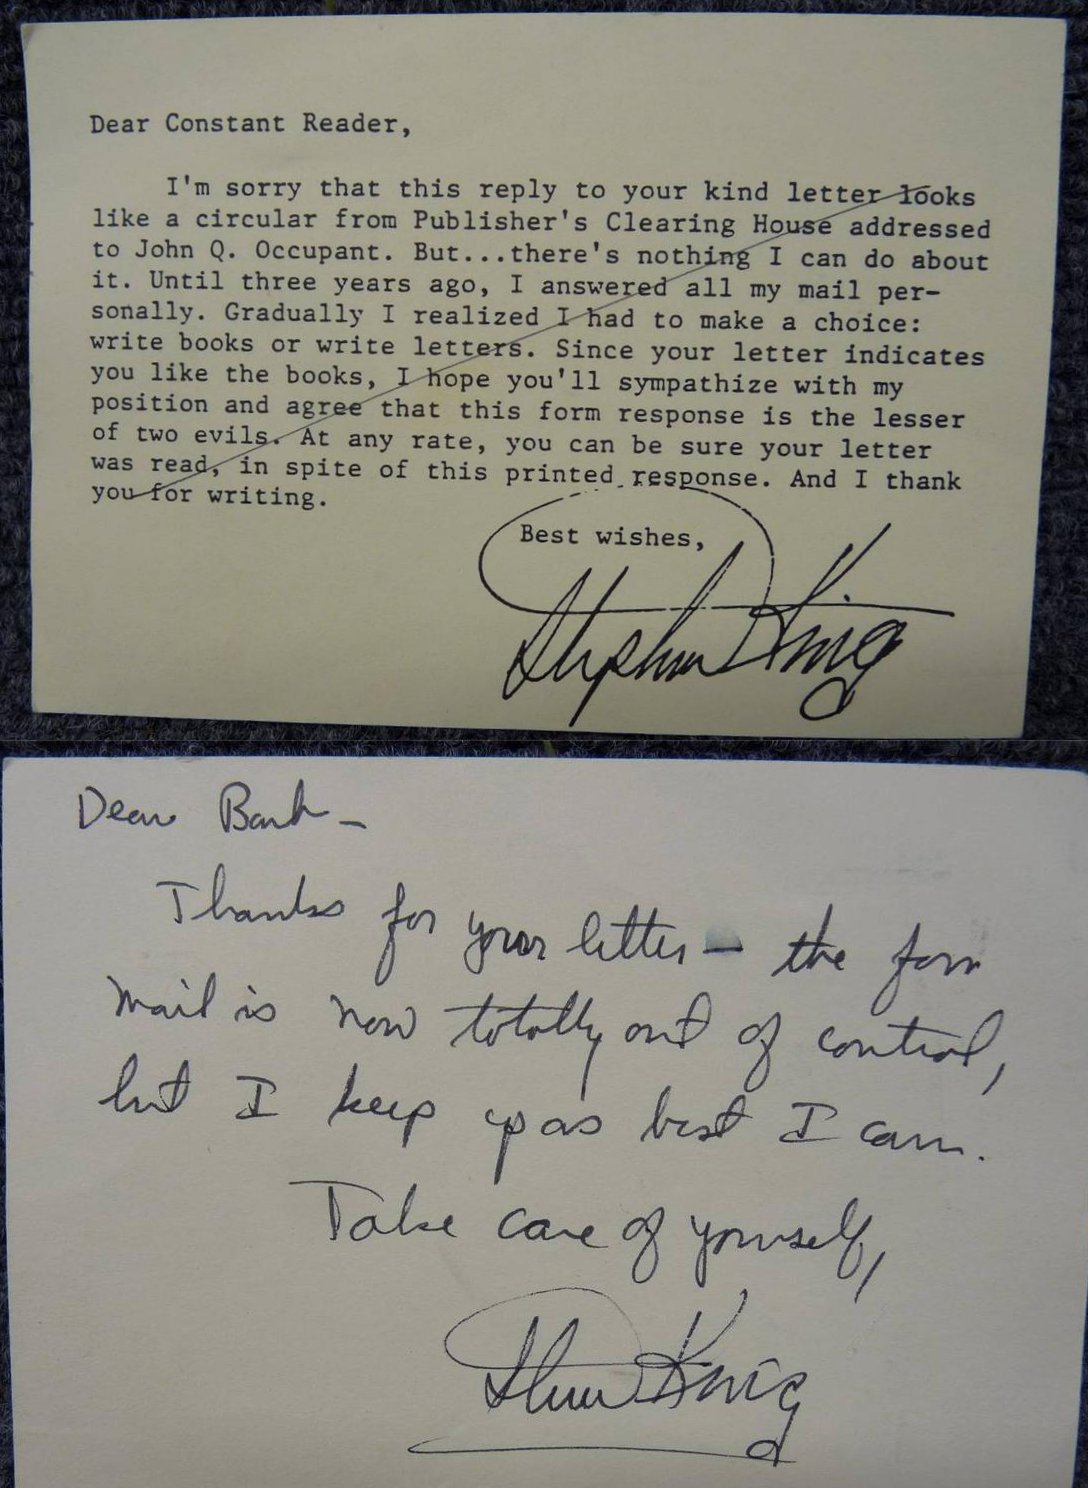 Dear Constant Reader,
I'm sorry that this reply to your kind letter looks
like a circular from Publisher's Clearing House addressed
to John Q. Occupant. But...there's nothing I can do about
it. Until three years ago, I answered all my mail per-
sonally. Gradually I realized I had to make a choice:
write books or write letters. Since your letter indicates
you like the books, I hope you'll sympathize with my
position and agree that this form response is the lesser
of two evils. At any rate, you can be sure your letter
was read, in spite of this printed response. And I thank
you for writing.
Best wishes,
Stephen King
Dear Barb—
Thanks for your letter — the fan
mail is now totally out of control,
but I keep up as best I can.
Take care of yourself,
Stephen King